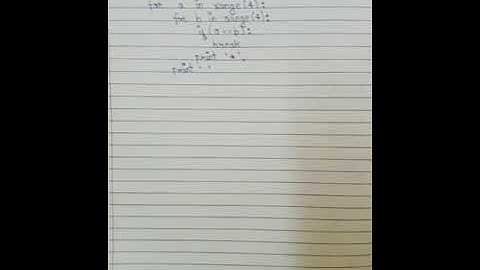 for a in range(4):
for b in range(4):
if (a==b):
break
print '*',
print ' '